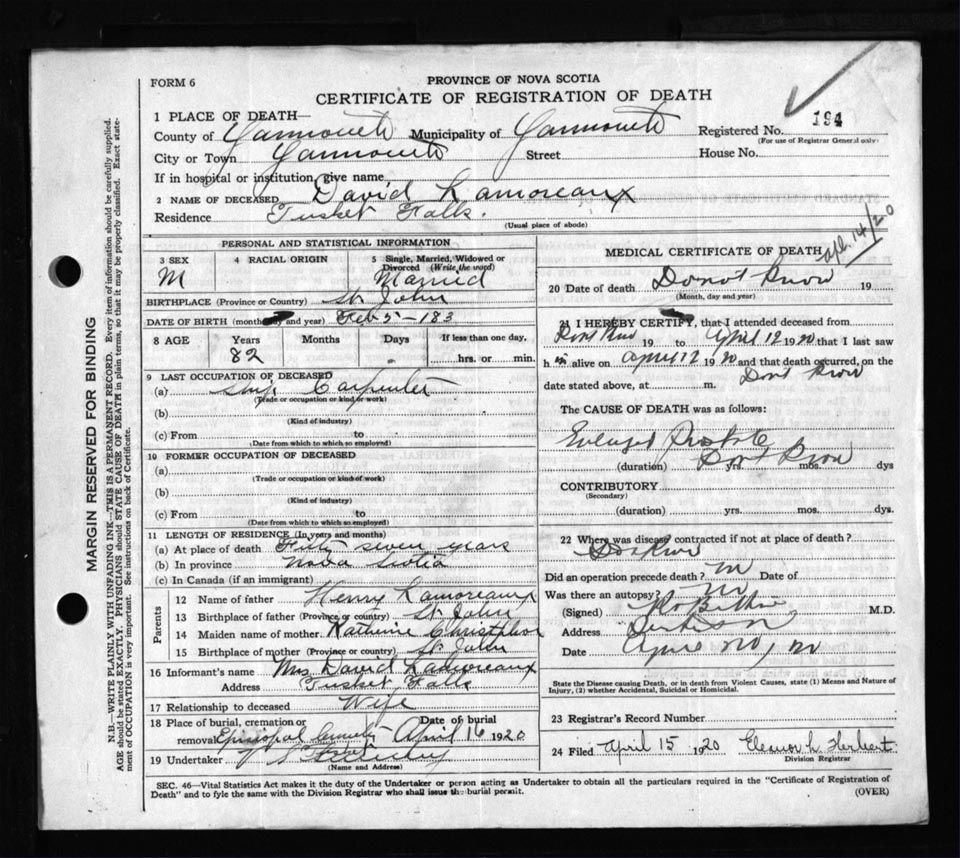 FORM 6
PROVINCE OF NOVA SCOTIA
CERTIFICATE OF REGISTRATION OF DEATH
194
1 PLACE OF DEATH—
County of Yarmouth Municipality of Yarmouth Registered No.
(For use of Registrar General only)
City or Town Yarmouth Street House No.
If in hospital or institution, give name
2 NAME OF DECEASED David Lamoreaux
Residence Tusket Falls.
(Usual place of abode)
PERSONAL AND STATISTICAL INFORMATION
3 SEX 4 RACIAL ORIGIN 5 Single, Married, Widowed or Divorced (Write the word)
M Married
BIRTHPLACE (Province or Country) St. John
DATE OF BIRTH (month and year) Feb 5 - 183
8 AGE Years Months Days If less than one day,
82 hrs. or min.
9 LAST OCCUPATION OF DECEASED
(a) Ship Carpenter
(Trade or occupation or kind of work)
(b)
(Kind of industry)
(c) From to
(Date from which to which so employed)
10 FORMER OCCUPATION OF DECEASED
(a)
(Trade or occupation or kind of work)
(b)
(Kind of industry)
(c) From to
(Date from which to which so employed)
11 LENGTH OF RESIDENCE (In years and months)
(a) At place of death Fifty seven years
(b) In province Nova Scotia
(c) In Canada (if an immigrant)
Parents
12 Name of father Henry Lamoreaux
13 Birthplace of father (Province or country) St. John
14 Maiden name of mother Katherine
15 Birthplace of mother (Province or country) St John
16 Informant's name Mrs David Lamoreaux
Address Tusket Falls
17 Relationship to deceased Wife
18 Place of burial, cremation or removal Episcopal Cemetery Date of burial April 16 1920
19 Undertaker
(Name and Address)
MEDICAL CERTIFICATE OF DEATH
14/20
20 Date of death Do not Know 19
(Month, day and year)
21 I HEREBY CERTIFY, that I attended deceased from
Dont Know 19 to April 12 1920 that I last saw
h im alive on April 12 1920 and that death occurred, on the
date stated above, at m. Dont Know
The CAUSE OF DEATH was as follows:
Enlarged Prostate
(duration) yrs. mos. dys Dont Know
CONTRIBUTORY
(Secondary)
(duration) yrs. mos. dys.
22 Where was disease contracted if not at place of death?
Did an operation precede death? no Date of
Was there an autopsy? no
(Signed) M.D.
Address
Date April
State the Disease causing Death, or in death from Violent Causes, state (1) Means and Nature of
Injury, (2) whether Accidental, Suicidal or Homicidal.
23 Registrar's Record Number
24 Filed April 15 1920 Eleanor L. Herbert.
Division Registrar
SEC. 46—Vital Statistics Act makes it the duty of the Undertaker or person acting as Undertaker to obtain all the particulars required in the "Certificate of Registration of
Death" and to fyle the same with the Division Registrar who shall issue the burial permit.
(OVER)
MARGIN RESERVED FOR BINDING
N.B.—WRITE PLAINLY WITH UNFADING INK—THIS IS A PERMANENT RECORD. Every item of information should be carefully supplied.
AGE should be stated EXACTLY. PHYSICIANS should STATE CAUSE OF DEATH in plain terms, so that it may be properly classified. Exact state-
ment of OCCUPATION is very important. See instructions on back of Certificate.